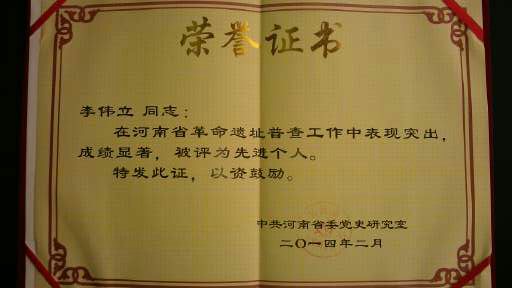 荣誉证书
李伟立 同志：
在河南省革命遗址普查工作中表现突出，
成绩显著，被评为先进个人。
特发此证，以资鼓励。
中共河南省委党史研究室
二〇一四年二月